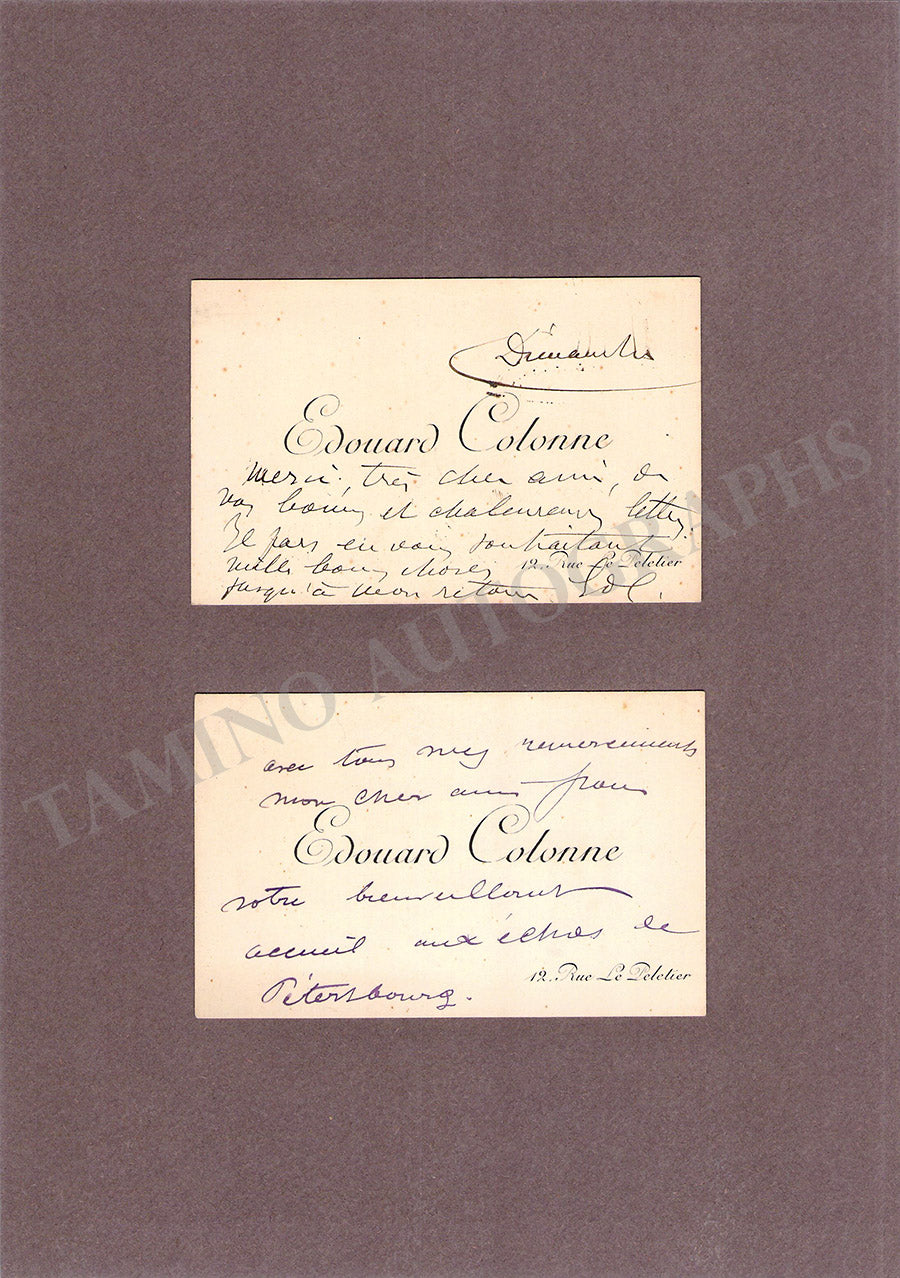 Dimanche
Edouard Colonne
Merci, très cher ami, de
vos bonnes et chaleureuses lettres.
Je pars en vous souhaitant
mille bonnes choses
12. Rue Le Peletier
jusqu'à mon retour EdC.
avec tous mes remerciements
mon cher ami pour
Edouard Colonne
votre bienveillant
accueil aux échos de
12. Rue Le Peletier
Pétersbourg.
TAMINO AUTOGRAPHS